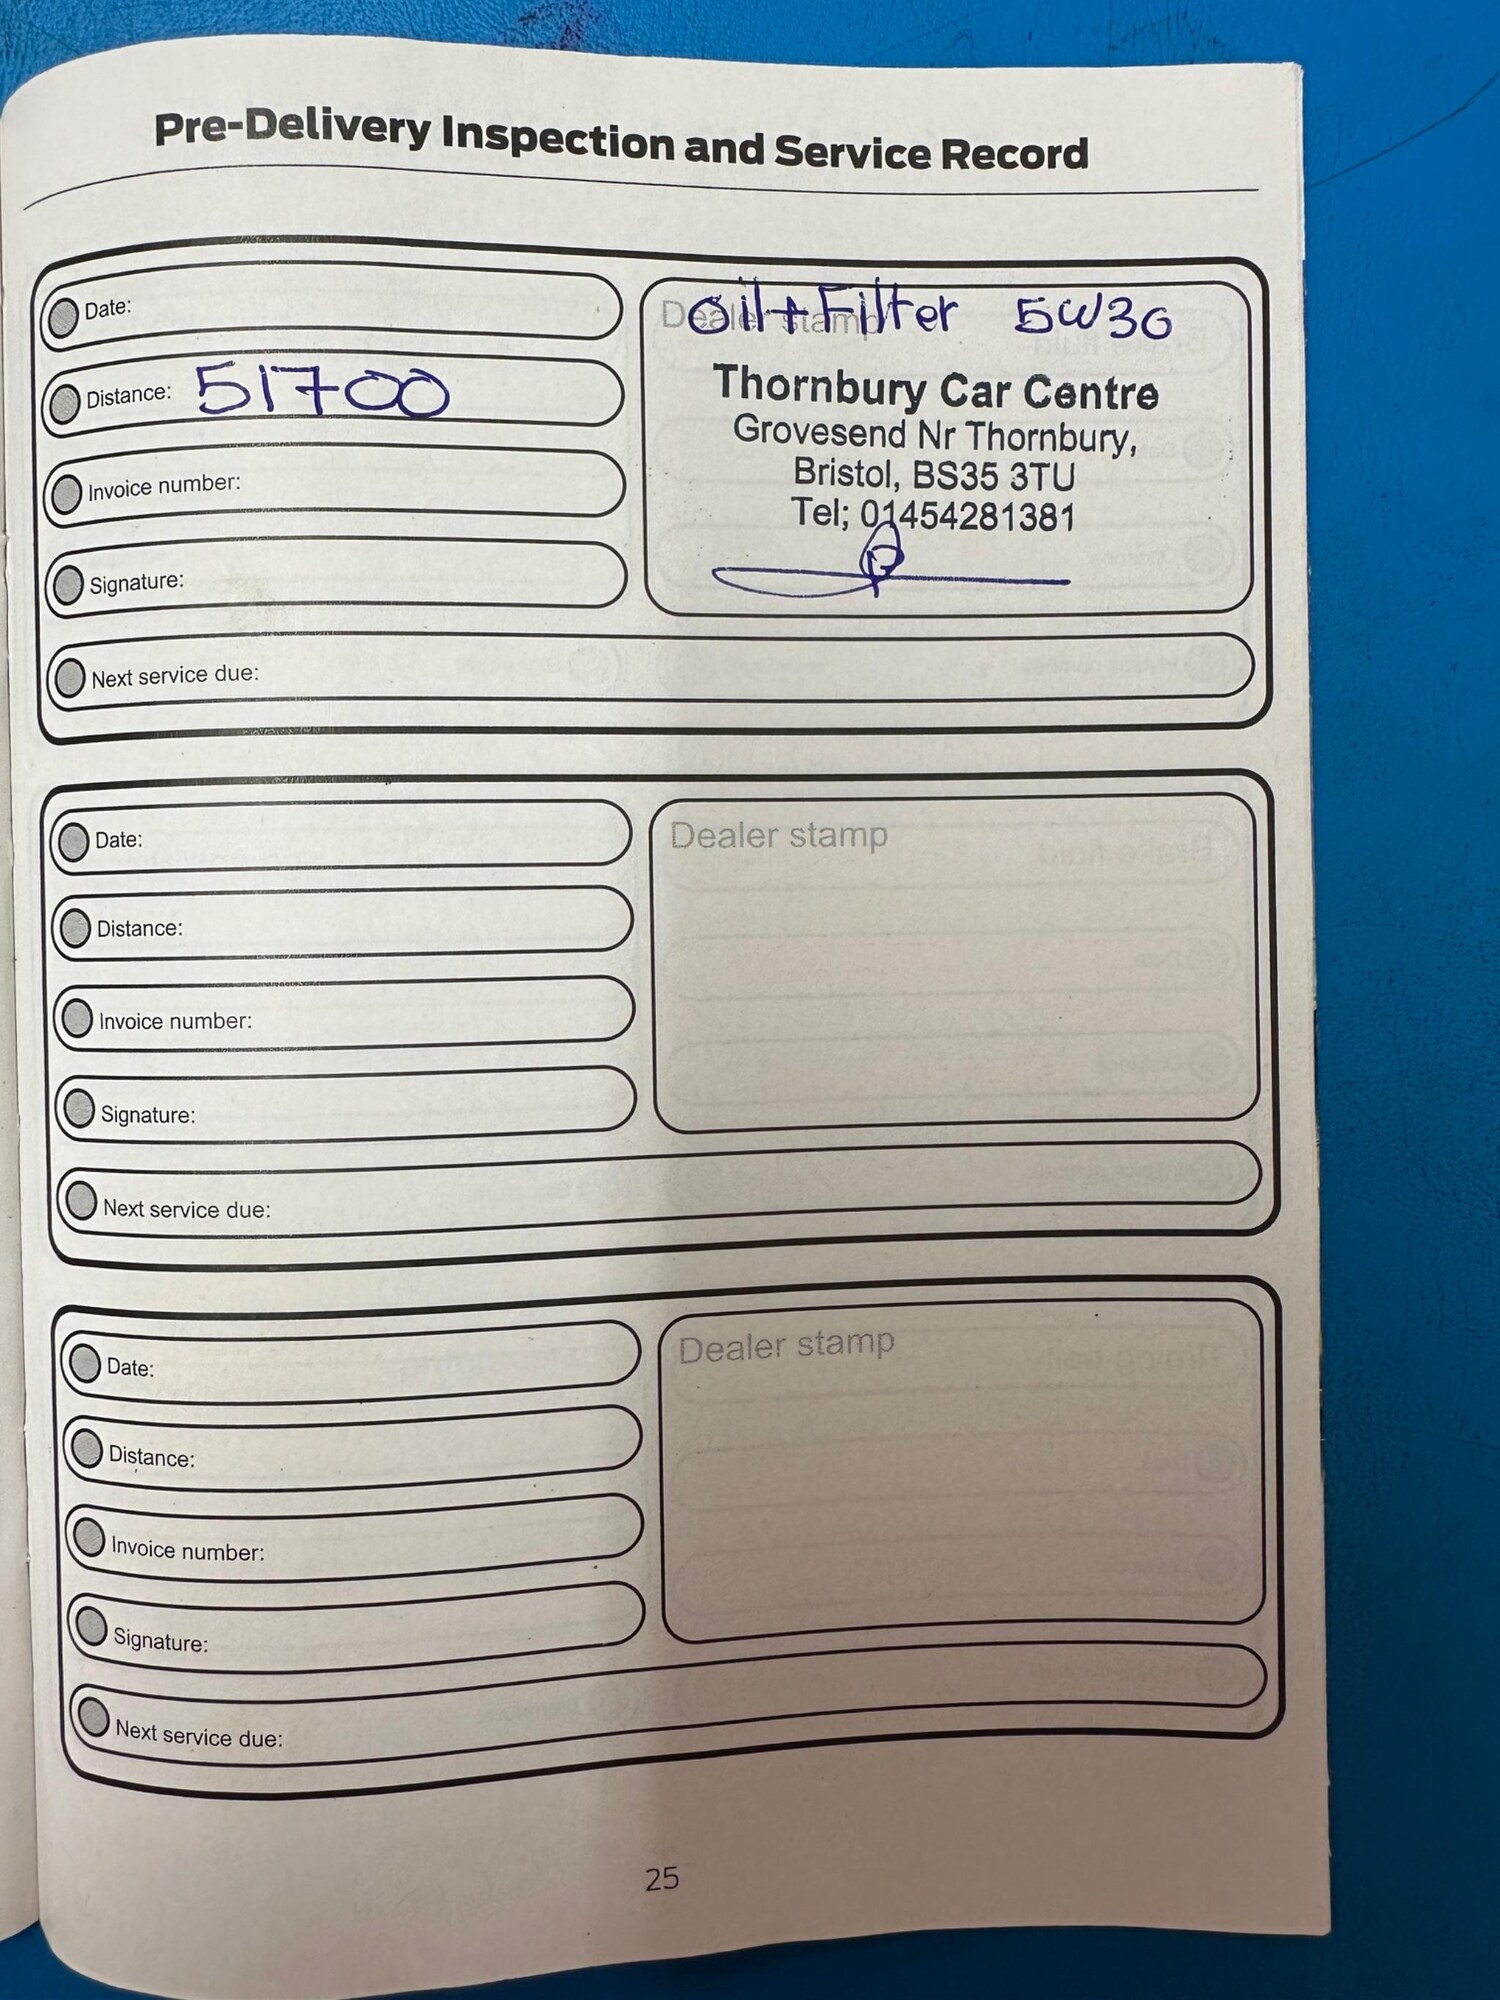 Pre-Delivery Inspection and Service Record
Date:
Distance: 51700
Invoice number:
Signature:
Next service due:
Dealer stamp
Oil + Filter 5W30
Thornbury Car Centre
Grovesend Nr Thornbury,
Bristol, BS35 3TU
Tel; 01454281381
Date:
Distance:
Invoice number:
Signature:
Next service due:
Dealer stamp
Date:
Distance:
Invoice number:
Signature:
Next service due:
Dealer stamp
25